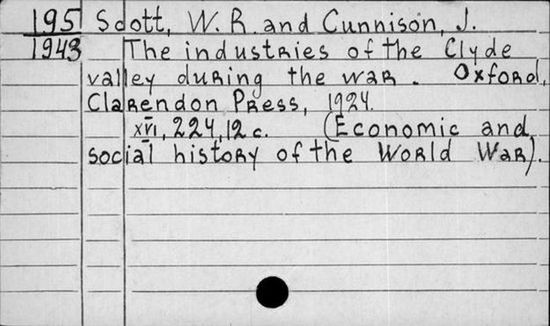 195 Scott, W. R. and Cunnison, J.
1943 The industries of the Clyde
valley during the war. Oxford,
Clarendon Press, 1924.
xvi, 224, 12 c. (Economic and
social history of the World War).